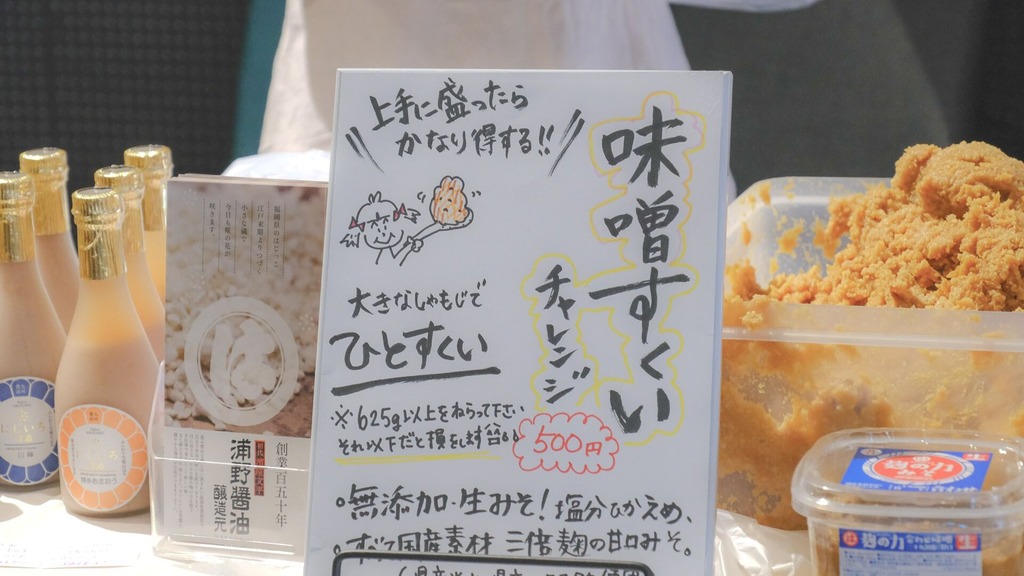 味噌すくい
チャレンジ
500円
上手に盛ったら
かなり得する!!
大きなしゃもじで
ひとすくい
※625g以上をねらって下さい
それ以下だと損をします
。無添加・生みそ!塩分ひかえめ、
。すべて国産素材 三倍麹の甘口みそ。
福岡県のはじっこ
江戸末期よりつづく
小さな蔵で
今日も糀の花が
咲きます。
創業百五十年
浦野醤油
醸造元
麹の力
麹の力